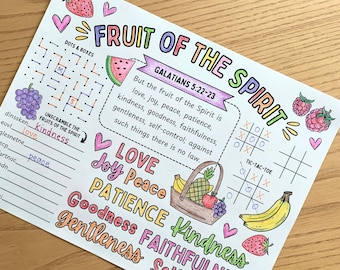 FRUIT OF THE SPIRIT
DOTS & BOXES
GALATIANS 5:22-23
But the fruit of the Spirit is
love, joy, peace, patience,
kindness, goodness, faithfulness,
gentleness, self-control; against
such things there is no law.
UNSCRAMBLE THE
FRUITS OF THE SPIRIT
kindness
love
peace
TIC-TAC-TOE
LOVE
Joy Peace
PATIENCE
Kindness
Goodness
FAITHFUL
Gentleness